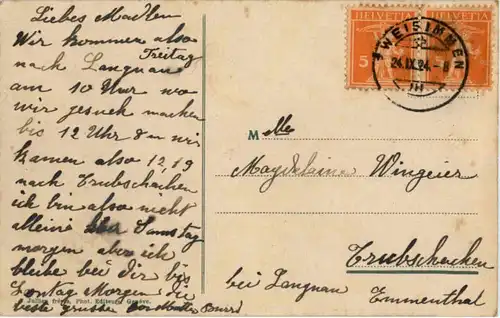 Liebes Madlen
Wir kommen also
Freitag
nach Langnau
am 10 Uhr wo
wir gesuch machen
bis 12 Uhr & wir
kamen also 12,19
nach Trubschachen
ich bin also nicht
alleine Samstag
morgen aber ich
bleibe bei dir bis
Sontag Morgen
beste grusse
Jullien frères, Phot. Editeurs, Genève.
HELVETIA HELVETIA
5
ZWEISIMMEN
24.IX.24.-8
Mlle
Magdalaina Wingeier
Trubschachen
bei Langnau
Emmenthal